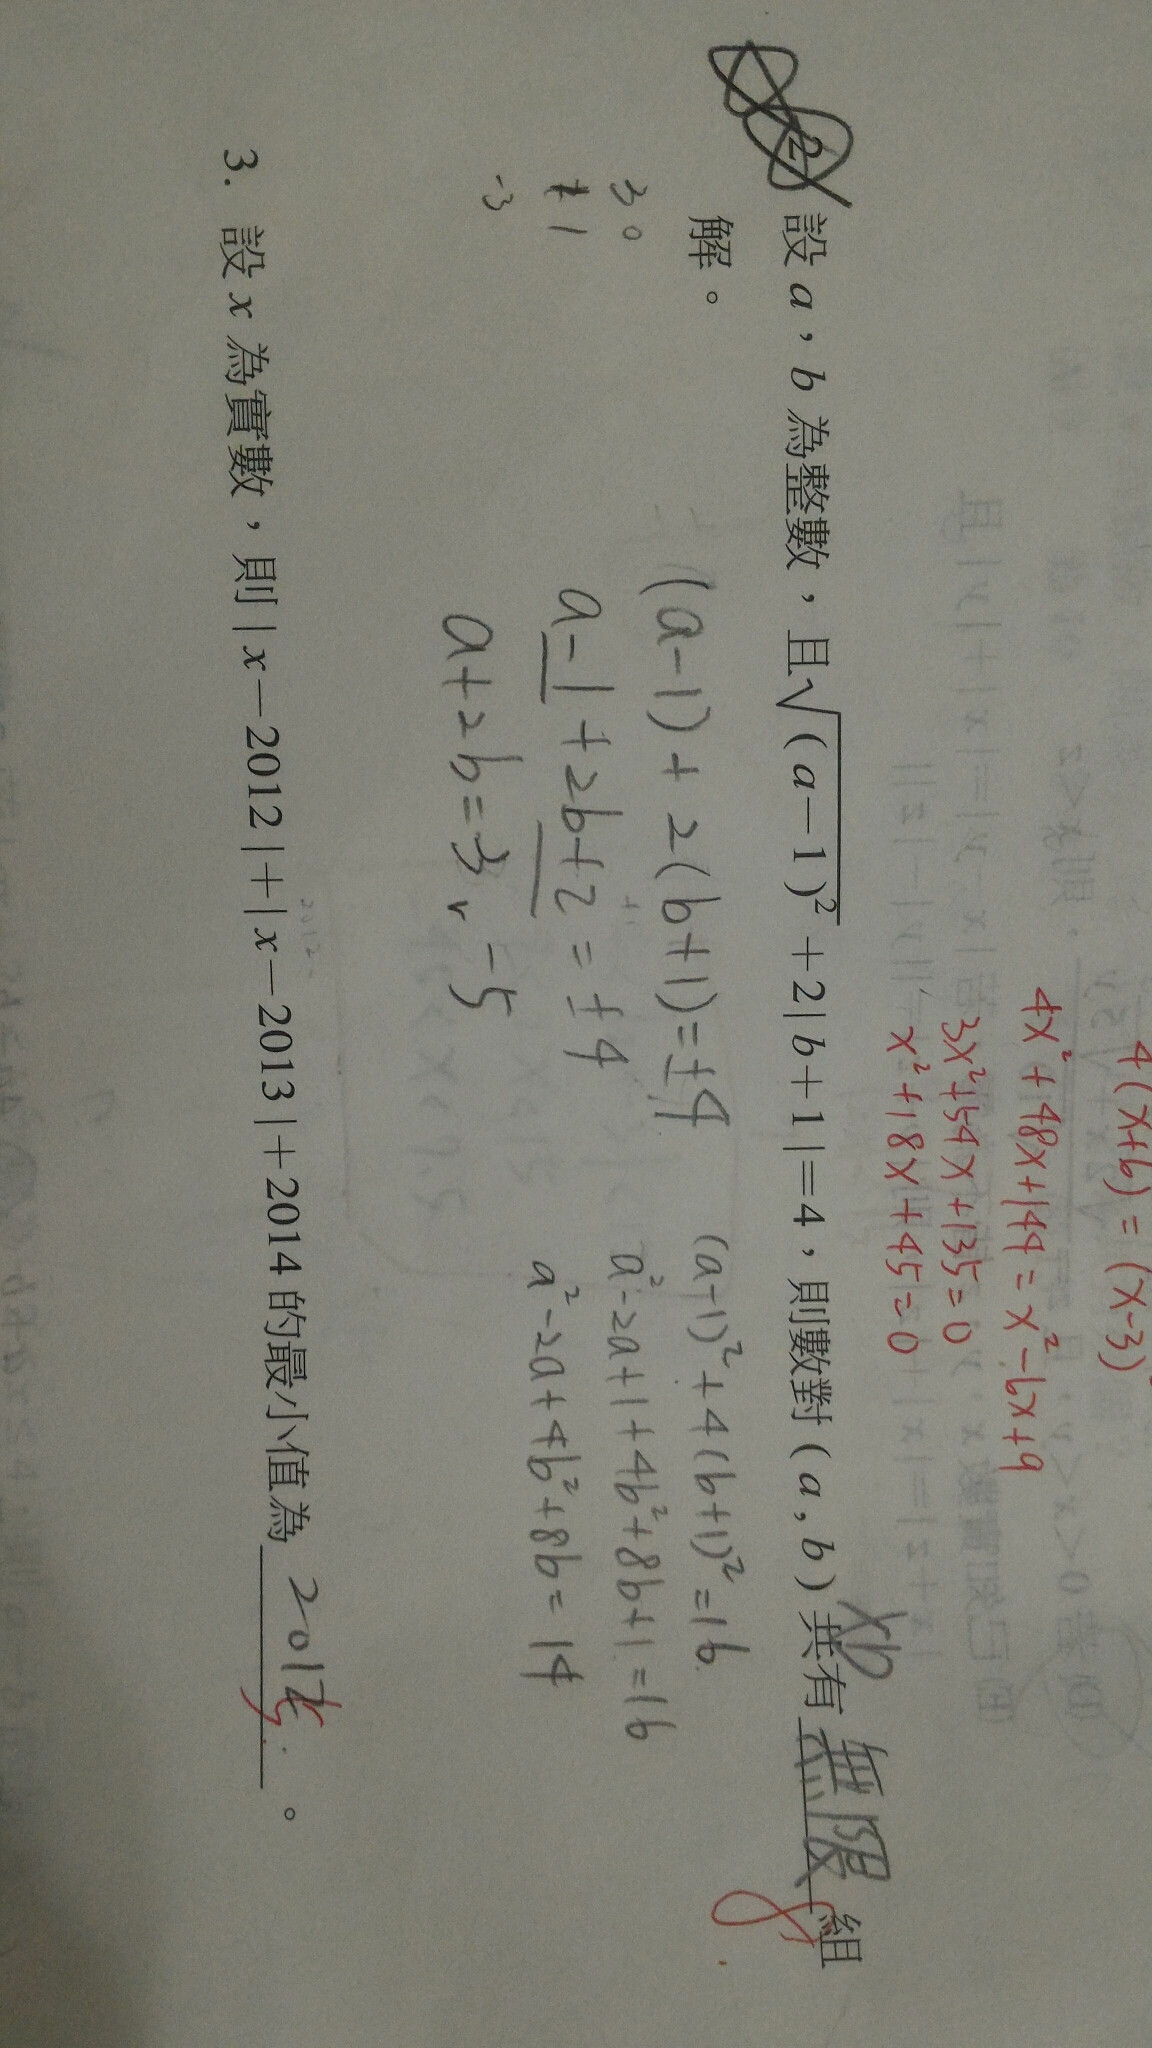 4(x+6)=(x-3)
4x²+48x+144=x²-6x+9
3x²+54x+135=0
x²+18x+45=0
2. 設 a，b 為整數，且√(a－1)²+2|b+1|=4，則數對(a,b)共有 無限 8 組
解。
(a-1)+2(b+1)=±4
a-1+2b+2=±4
a+2b=3, -5
(a-1)²+4(b+1)²=16
a²-2a+1+4b²+8b+1=16
a²-2a+4b²+8b=14
3 0
1
-3
3. 設 x 為實數，則|x－2012|+|x－2013|+2014 的最小值為 2015。